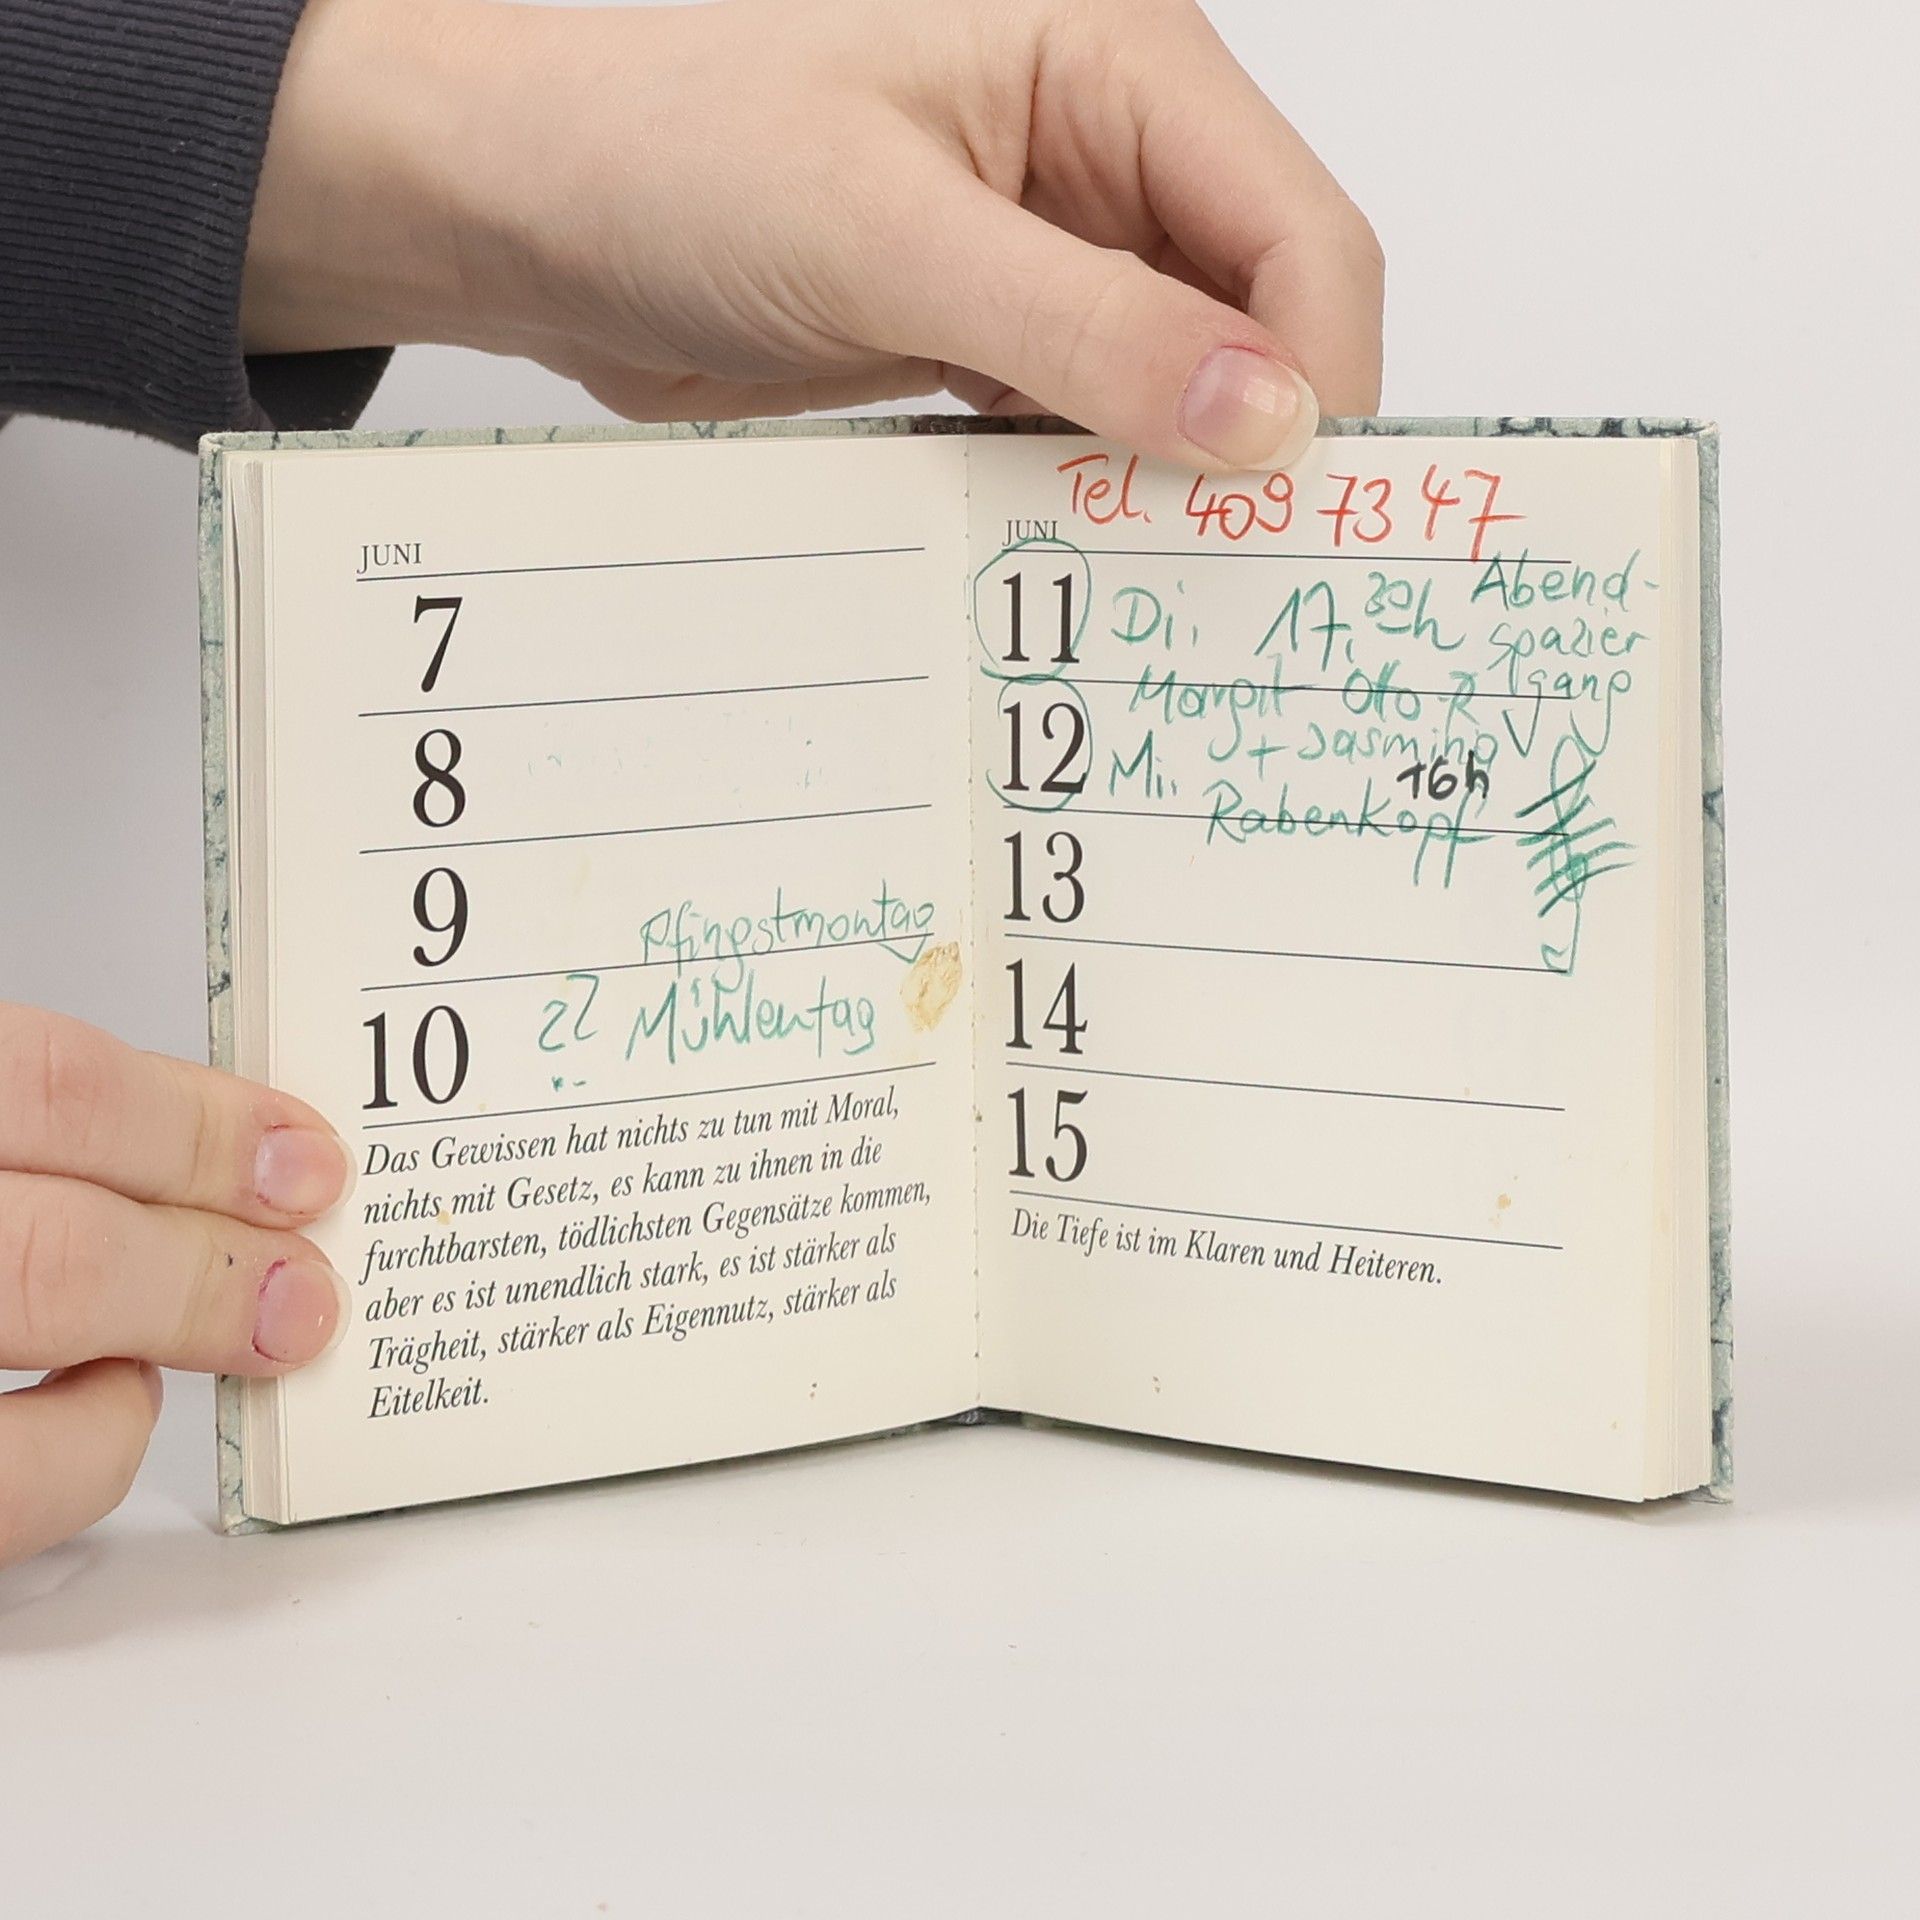 JUNI
7
8
9
Pfingstmontag
10 Mühlentag
Das Gewissen hat nichts zu tun mit Moral,
nichts mit Gesetz, es kann zu ihnen in die
furchtbarsten, tödlichsten Gegensätze kommen,
aber es ist unendlich stark, es ist stärker als
Trägheit, stärker als Eigennutz, stärker als
Eitelkeit.
Tel. 409 73 47
JUNI
11 Di. 17.30h Abend-
spazier
gang
Margit Otto-R
+ Jasmina
12 Mi. 16h
Rabenkopf
13
14
15
Die Tiefe ist im Klaren und Heiteren.